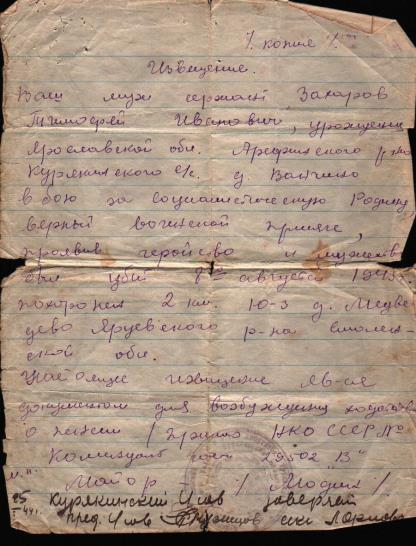 % копия %
Извещение.
Ваш муж сержант Захаров
Тимофей Иванович, уроженец
Ярославской обл. Арефинского р-на
Курякинского с/с. д.
в бою за социалистическую Родину
верный воинской присяге,
проявив геройство и мужество
был убит 8го августа 1943
похоронен 2 км. Ю-З д. Медве
дево Ярцевского р-на смолен-
ской обл.
явл-ся
документом для возбуждения ходатайс
о пенсии / приказ НКО СССР №
29502 "В"
Майор - % %
25 Курякинский с/сов заверяет
пред. с/сов